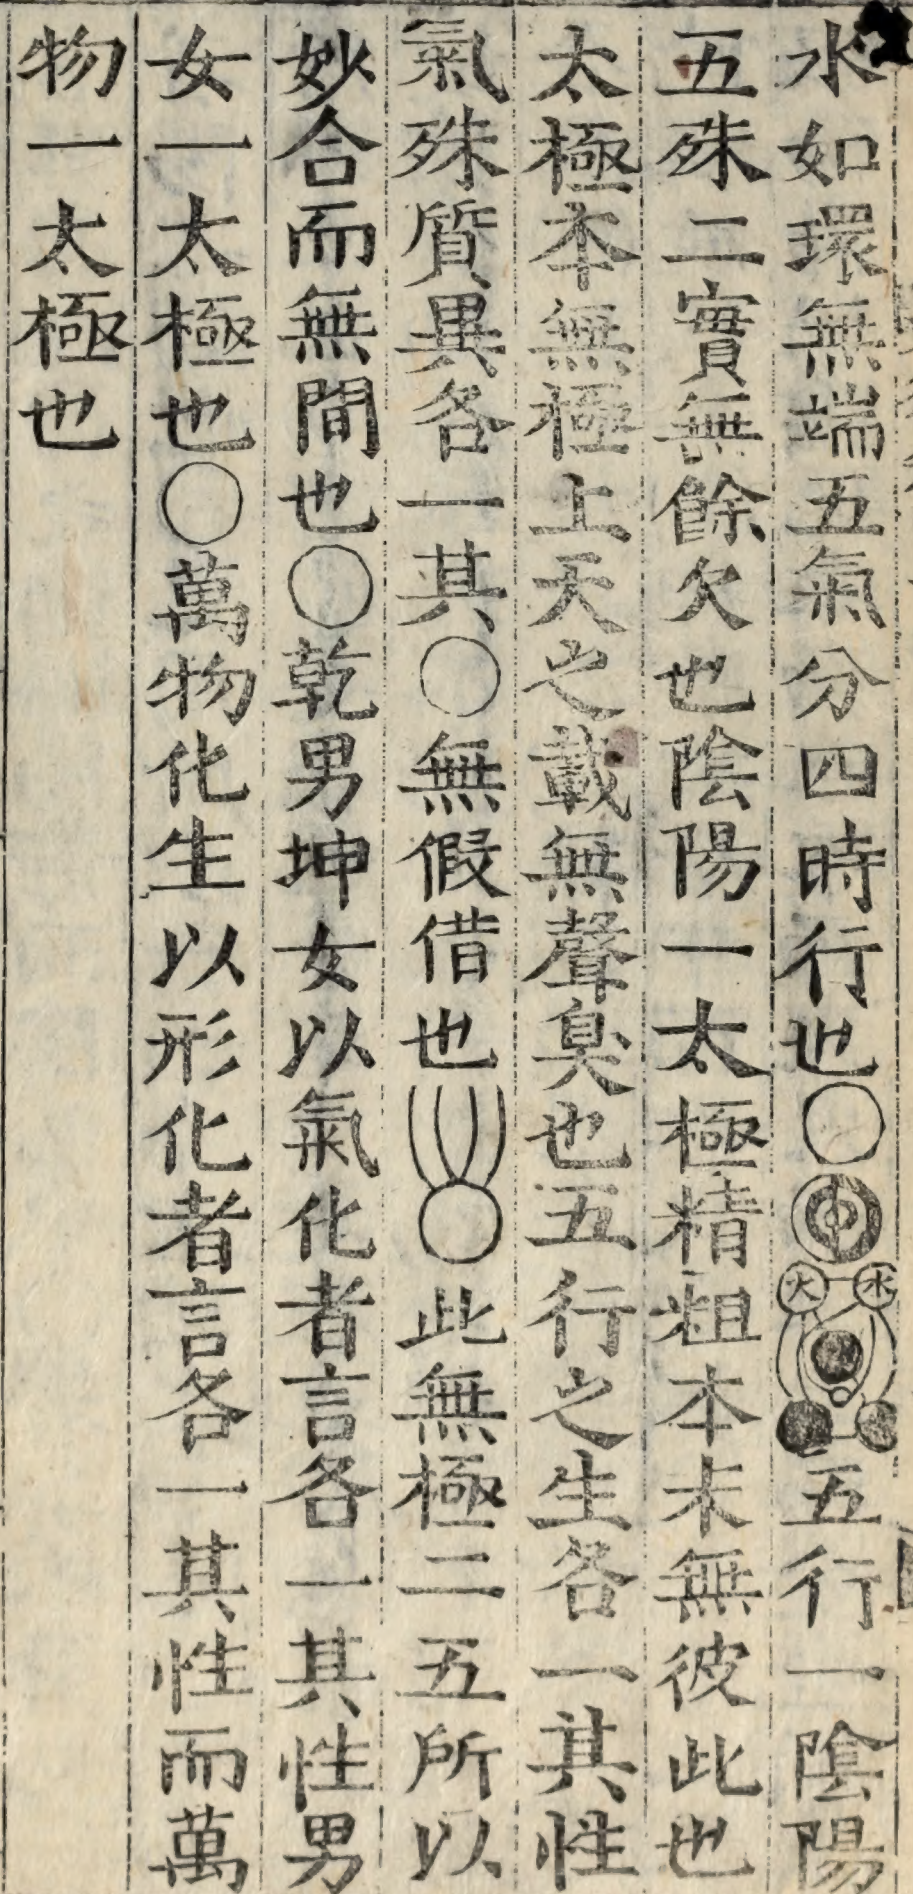 水如環無端五氣分四時行也○水火五行一陰陽
五殊二實無餘欠也陰陽一太極精粗本末無彼此也
太極本無極上天之載無聲臭也五行之生各一其性
氣殊質異各一其○無假借也○此無極二五所以
妙合而無間也○乾男坤女以氣化者言各一其性男
女一太極也○萬物化生以形化者言各一其性而萬
物一太極也